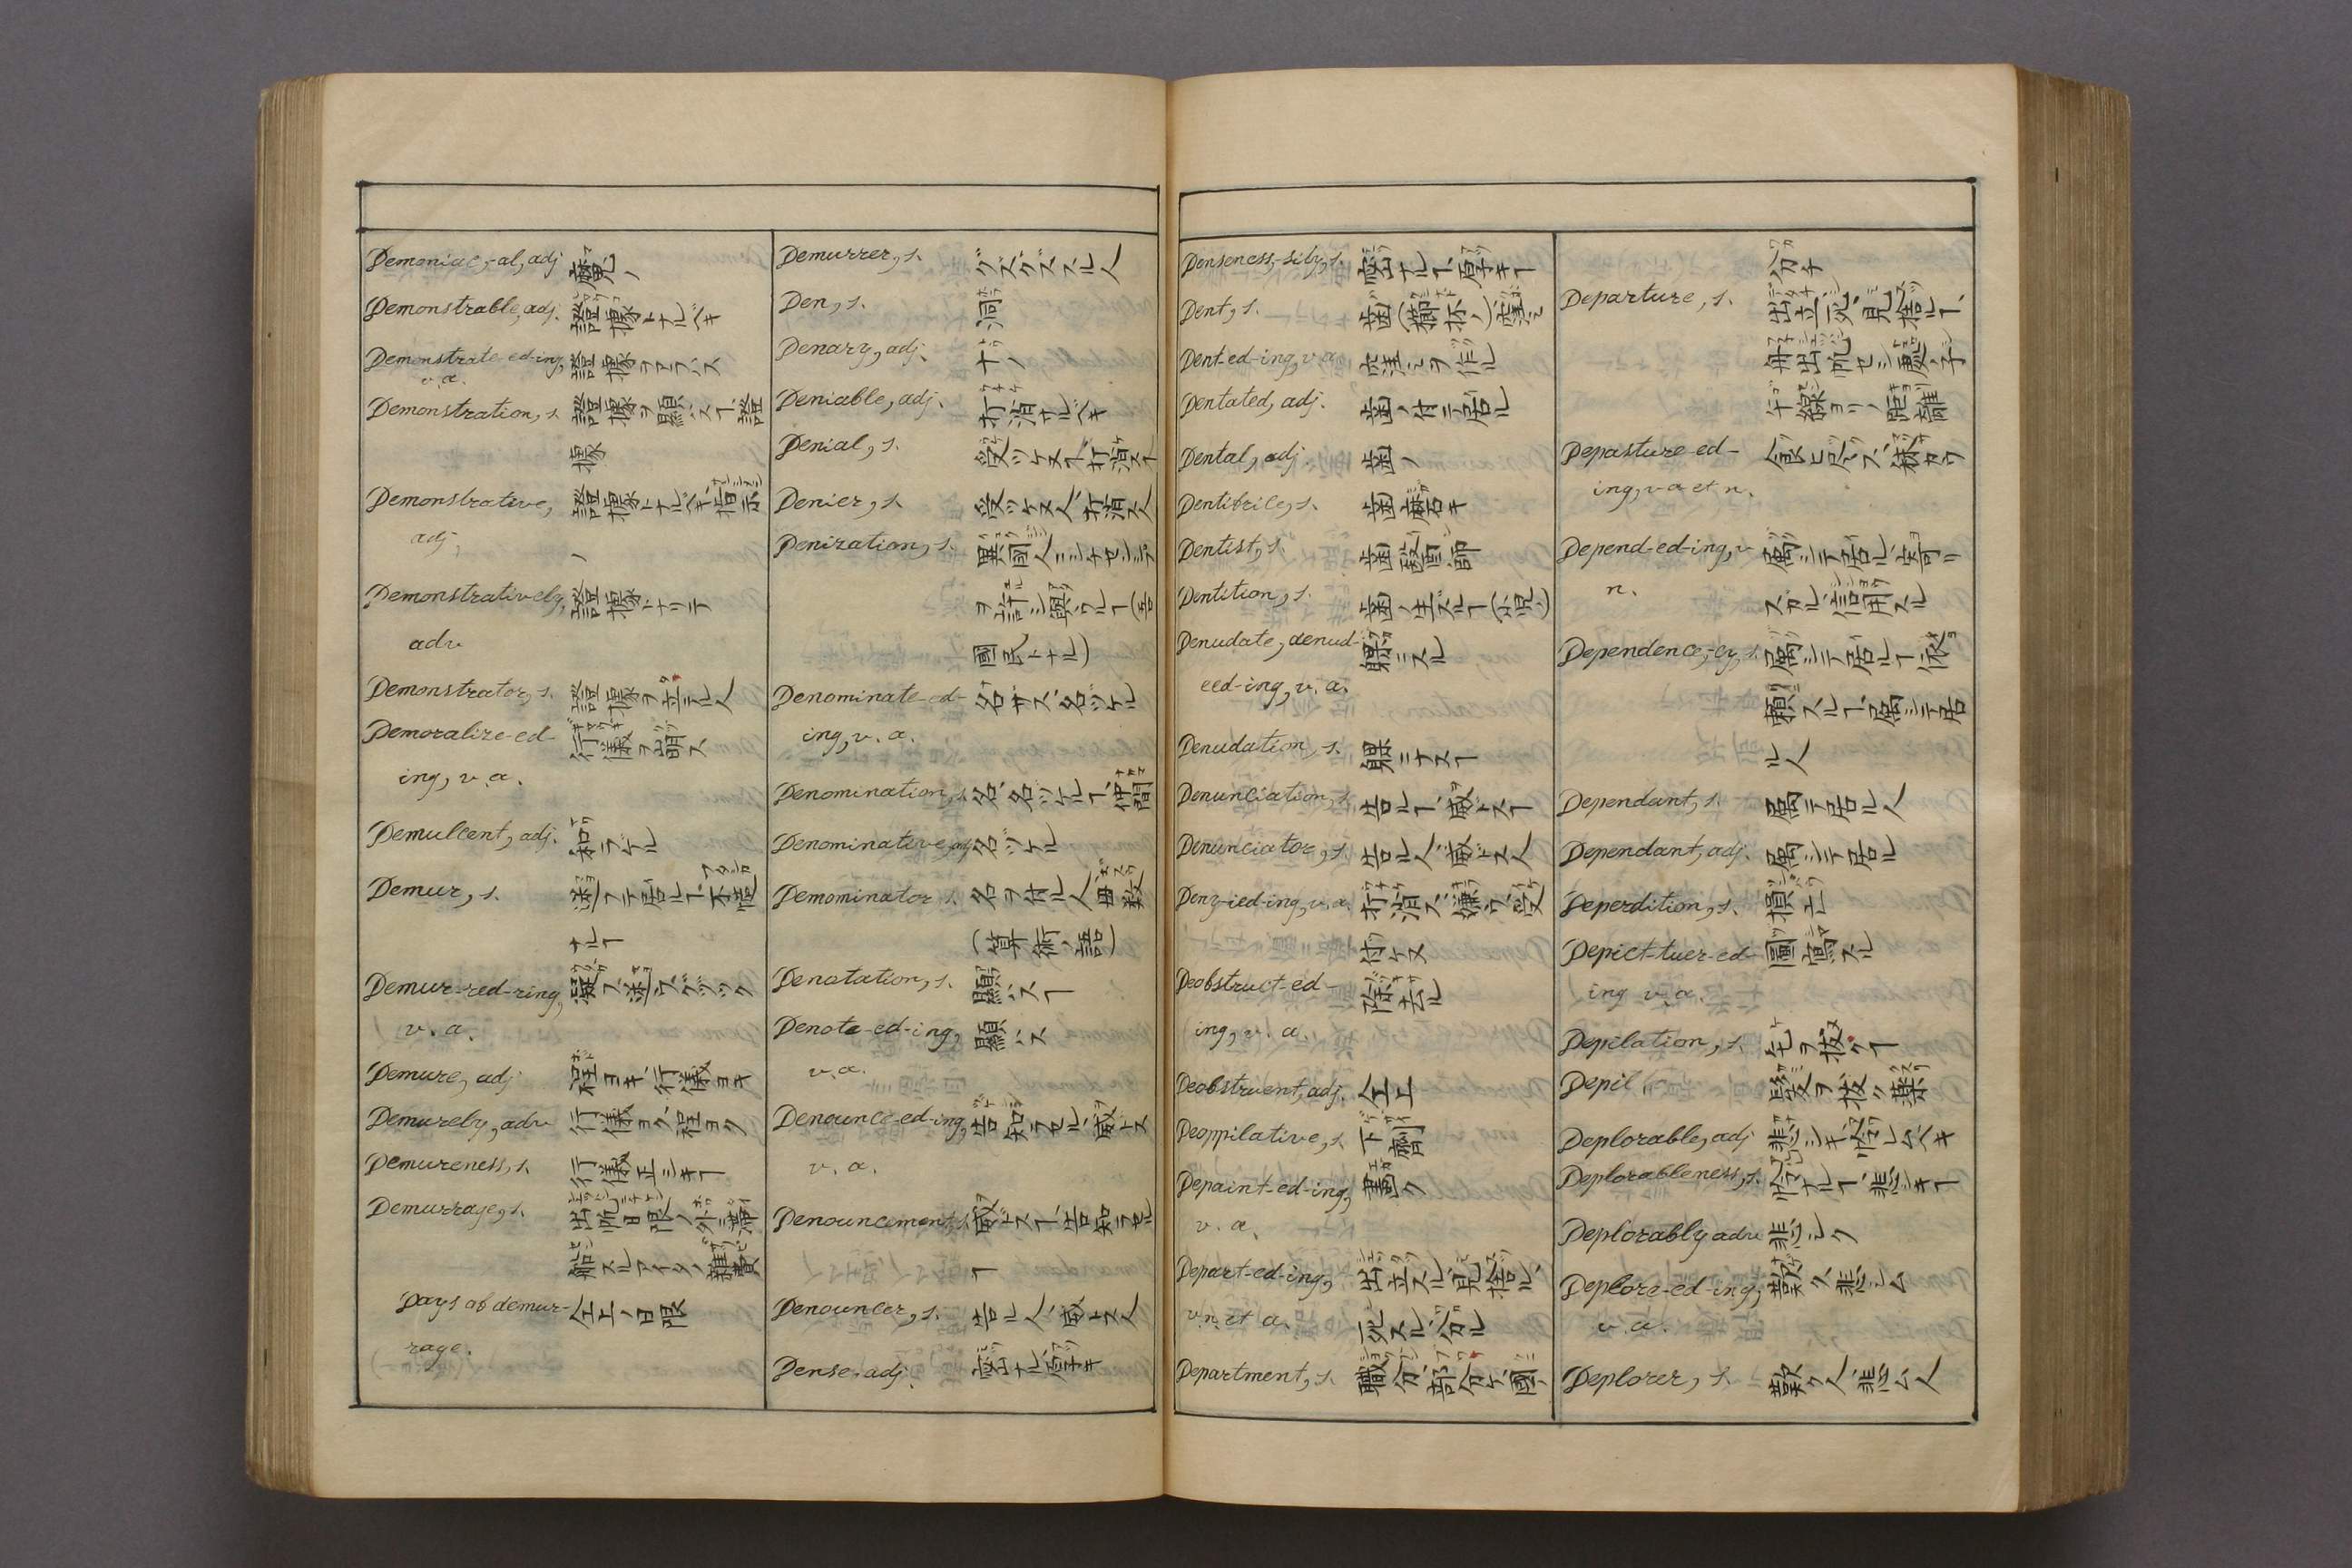 Demoniac,-al, adj 魔鬼ノ
Demonstrable, adj. 證據トナルベキ
Demonstrate-ed-ing, 證據ヲアラハス
v. a.
Demonstration, s. 證據ヲ顯ハスヿ、證
據
Demonstrative, 證據トナルベキ、指示
adj, ノ
Demonstratively, 證據トナリテ
adv
Demonstrator, s. 證據ヲ立テル人
Demoralize-ed- 行儀ヲ崩ス
ing, v. a.
Demulcent, adj. 和ラゲル
Demur, s. 迷フテ居ルヿ、不慥
ナルヿ
Demur-red-ring, 疑フ、迷フ、グヅツク
v. a.
Demure, adj 程ヨキ、行儀ヨキ
Demurely, adv 行儀ヨク、程ヨク
Demureness, s. 行儀正シキヿ
Demurrage, s. 出帆日限ノ外ニ滞
船スルアイダノ雜費
Days of demur- 仝上ノ日限
rage.
Demurrer, s. グズグズスル人
Den, s. 洞
Denary, adj. 十ノ
Deniable, adj. 打消サルベキ
Denial, s. 受ツケヌヿ、打消スヿ
Denier, s. 受ツケヌ人、打消ス人
Denization, s. 異國人ニシナセシヿ
ヲ許シ與フルヿ(吾
國民トナル)
Denominate-ed- 名ザス、名ヅケル
ing, v. a.
Denomination, s. 名、名ヅケルヿ、仲間
Denominative, adj 名ヅケル
Demominator s. 名ヲ付ル人、母數
(算術ノ語)
Denotation, s. 顯ハスヿ
Denote-ed-ing, 顯ハス
v. a.
Denounce-ed-ing, 告知ラセル、威ドス
v. a.
Denouncement, s. 威ドスヿ、告知ラセル
ヿ
Denouncer, s. 告ル人、威ドス人
Dense, adj. 密ナル、厚キ
Denseness,-sity, s. 密ナルヿ、厚キヿ
Dent, s. 歯(櫛抔ノ)
Dent-ed-ing, v. a ヲ作ル
Dentated, adj. 歯ノ付テ居ル
Dental, adj. 歯ノ
Dentifrice, s. 歯磨キ
Dentist, s. 歯醫師
Dentition, s. 歯ノ生ズルヿ(小児ノ)
Denudate, denud- 躶ニスル
eed-ing, v. a.
Denudation, s. 躶ニナスヿ
Denunciation, s. 告ルヿ、威ドスヿ
Denunciator, s. 告ル人、威ドス人
Deny-ied-ing, v. a. 打消ス、嫌フ、受
付ケヌ
Deobstruct-ed- 除キ去ル
ing, v. a.
Deobstruent, adj. 仝上
Deoppilative, s. 下劑
Depaint-ed-ing, 畫ク
v. a.
Depart-ed-ing, 出立スル、見捨ル、
v. n. et a. 死スル、分ル
Department, s. 職分、部分ケ、國ノ
分チ
Departure, s. 出立、死、見捨ルヿ、
舟出帆セシ處ノ子
午線ヨリノ距離
Depasture-ed- 食ヒ尽ス、
ing, v. a et n.
Depend-ed-ing, v 属シテ居ル、寄リ
n. スガル、信用スル
Dependence,-cy, s. 属シテ居ルヿ、依
頼スルヿ、属シテ居
ル人
Dependant, s. 属テ居ル人
Dependant, adj. 属シテ居ル
Deperdition, s. 損亡
Depict-tuer-ed- 圖寫スル
ing v. a.
Depilation, s. 毛ヲ抜クヿ
Depil 髮ヲ抜ク藥
Deplorable, adj 悲シキ、怜レムベキ
Deplorableness, s. 怜ナルヿ、悲シキヿ
Deplorably adv 悲シク
Deplore-ed-ing, 歎ク、悲シム
v. a.
Deplorer, s. 歎ク人、悲ム人